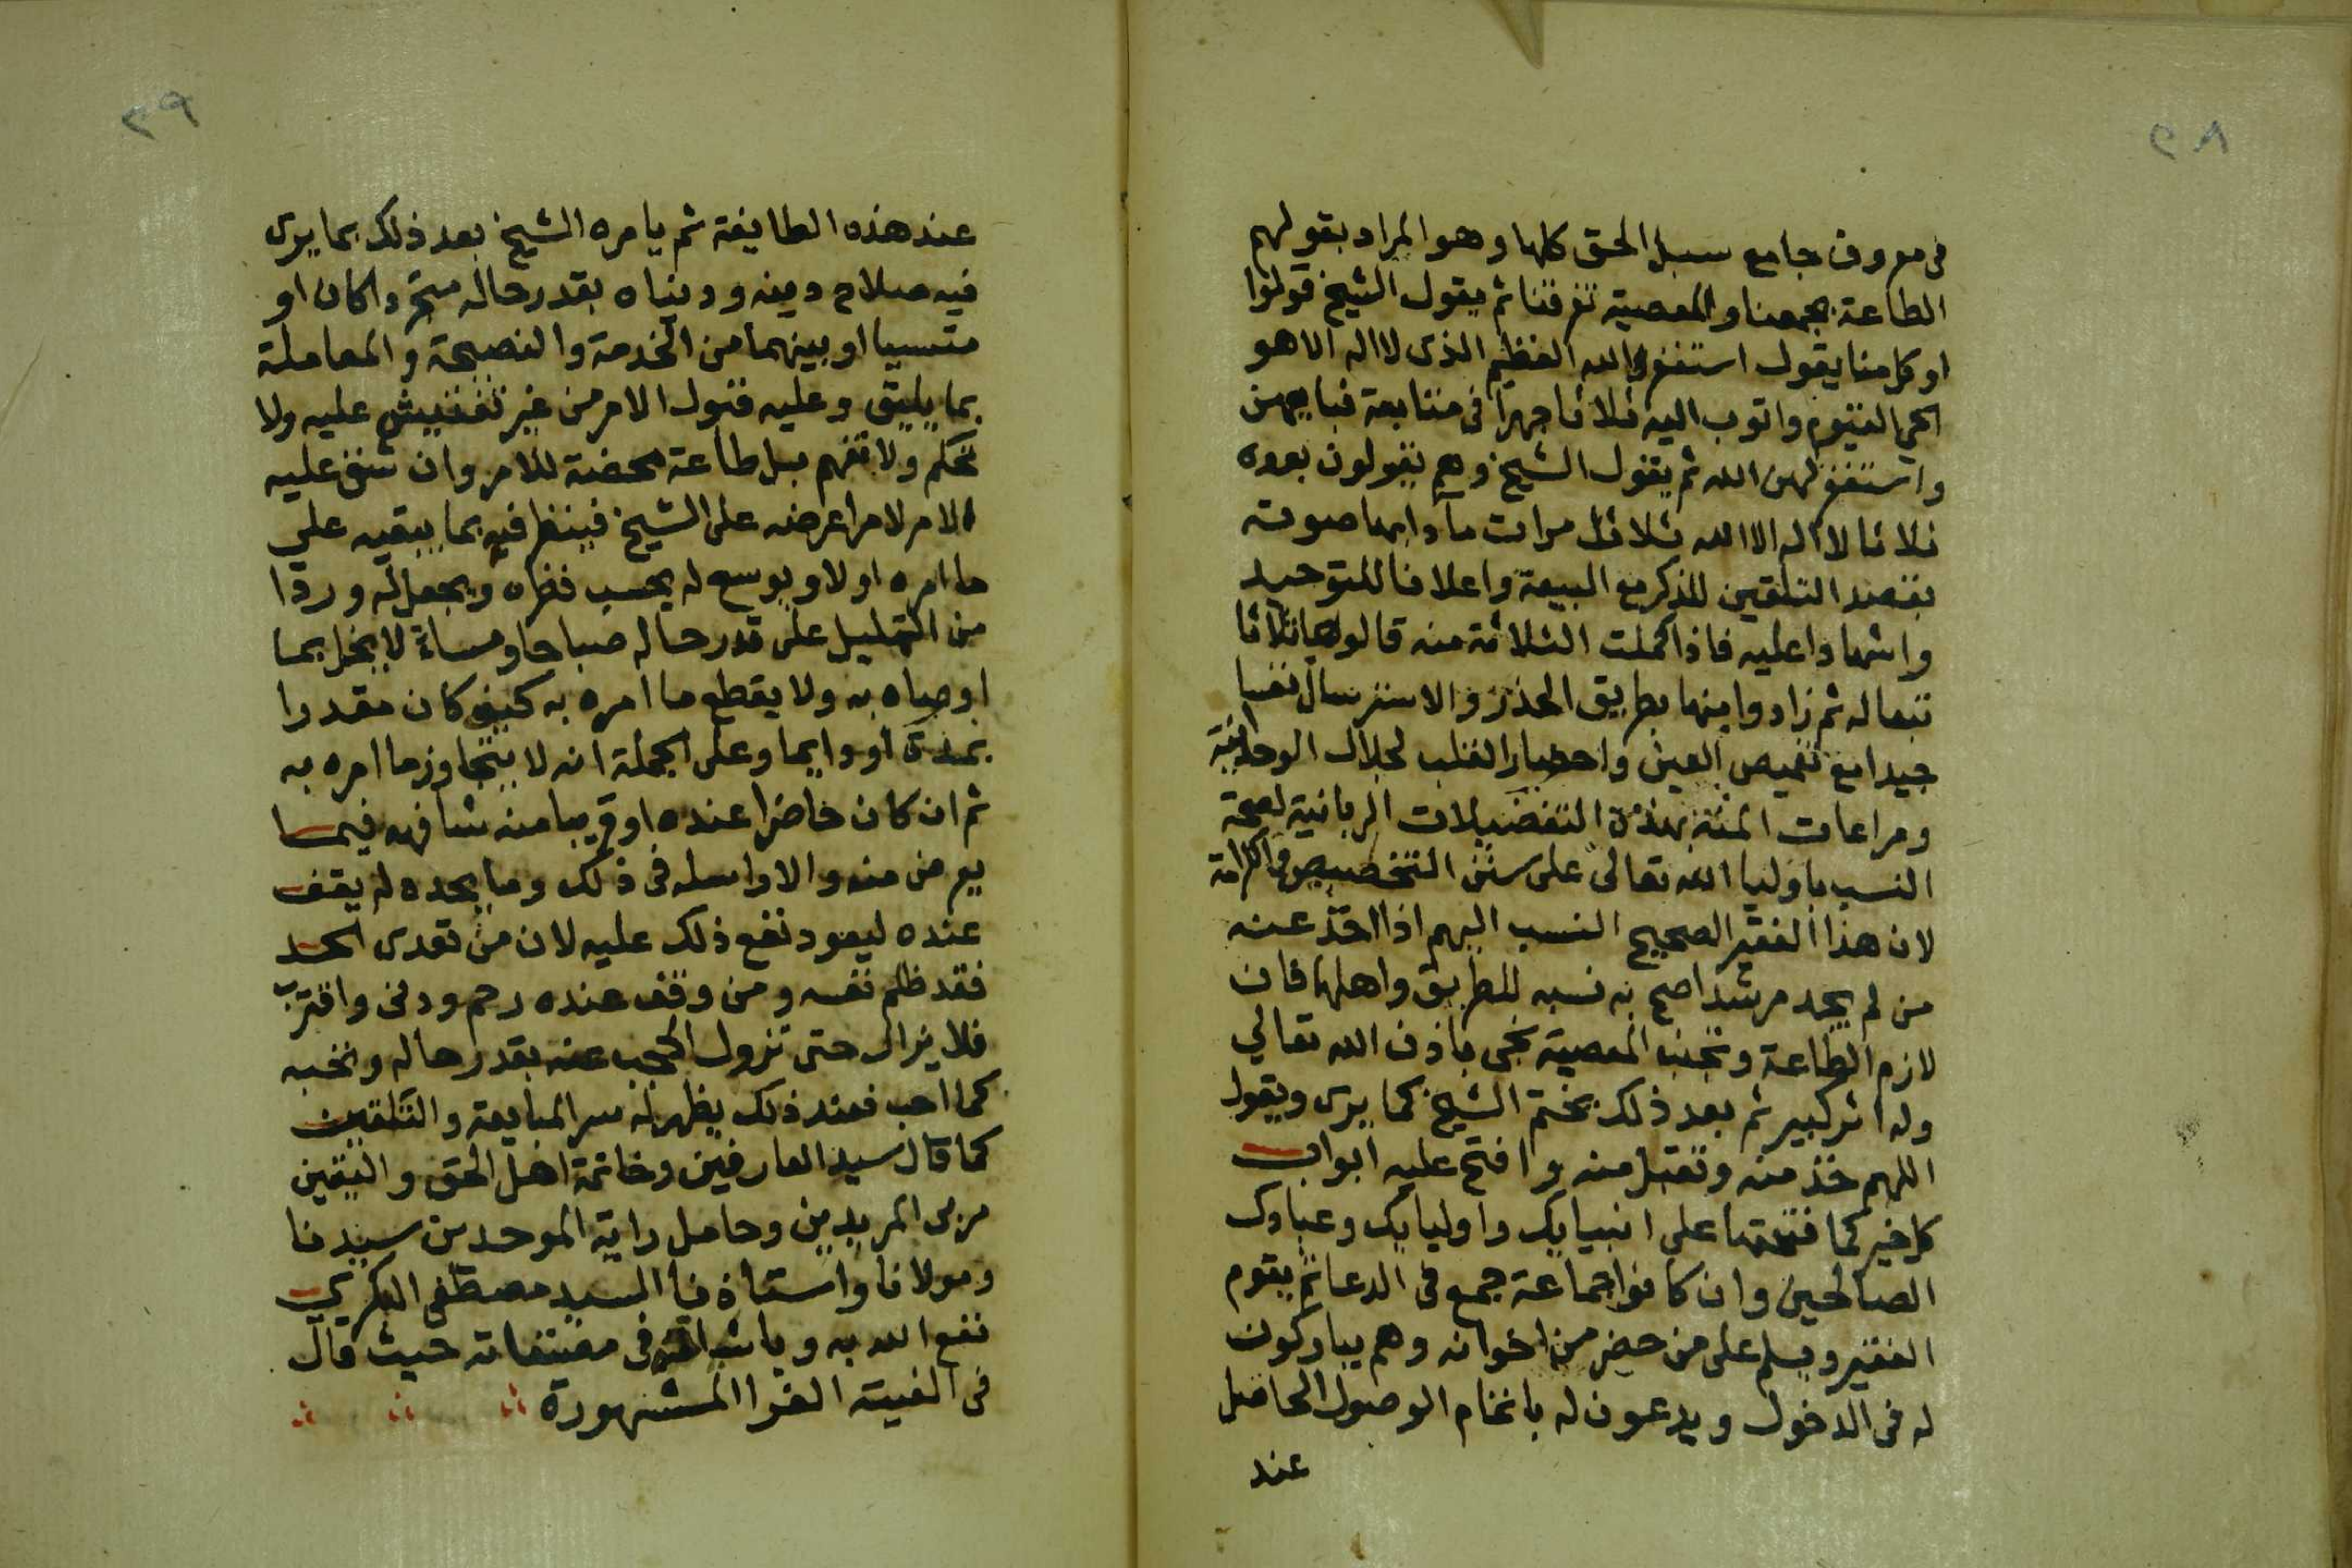 ٢٨
في معروف جامع سبل الحق كلها وهو المراد بقولهم
الطاعة تجمعنا والمعصية تفرقنا ثم يقول الشيخ قولوا
او كل منا يقول استغفر الله العظيم الذى لا اله الا هو
الحي القيوم واتوب اليه ثلاثا جهرا فى متابعة فبايعهن
واستغفر لهن الله ثم يقول الشيخ وهم يقولون بعده
ثلاثا لا اله الا الله ثلاث مرات مآدا بها صوته
بقصد التلقين للذكر مع البيعة واعلانا للتوحيد
واشهادا عليه فاذا كملت الثلاثة منه قالوها ثلاثا
تبعا له ثم زادوا منها بطريق الحذر والاسترسال نفسا
جيدا مع تغميض العين واحضار القلب لجلال الوحدانية
ومراعات المنة بهذه التفضيلات الربانية لصحة
النسب باوليا الله تعالى على سنن التخصيص والكرامة
لان هذا الفقير الصحيح النسب اليهم اذا اخذ عنه
من لم يجد مرشدا صح به نسبه للطريق واهلها فان
لازم الطاعة وتجنب المعصية نجى باذن الله تعالي
وله اثر كبير ثم بعد ذلك يختم الشيخ كما يرى ويقول
اللهم خذ منه وتقبل منه وافتح عليه ابواب
كل خير كما فتحتها على انبيايك واوليايك وعبادك
الصالحين وان كانوا جماعة جمع فى الدعا ثم يقوم
الفقير ويسلم على من حضر من اخوانه وهم يباركون
له فى الدخول ويدعون له باتمام الوصول الحاصل
عند
٢٩
عند هذه الطايفة ثم يامره الشيخ بعد ذلك بما يرى
فيه صلاح دينه ودنياه بقدر حاله متجردا كان او
متسببا او بينهما من الخدمة والنصيحة والمعاملة
بما يليق وعليه قبول الامر من غير تفتيش عليه ولا
تحكم ولا تفهم بل طاعة محضة للامر وان شق عليه
الامر لامر اعرضه على الشيخ فينظر فيه بما يبقيه علي
ما امره اولا ويوسع له بحسب نظره ويجعل له وردا
من التهليل على قدر حاله صباحا ومساء لا يخل بما
اوصاه به ولا يقطع ما امره به كيف كان مقدرا
بمدة او دايما وعلى الجملة انه لا يتجاوز ما امره به
ثم ان كان حاضرا عنده او قريبا منه شافهه فيما
يعرض منه والا راسله فى ذلك وما يحده له يقف
عنده ليعود نفع ذلك عليه لان من تعدى الحد
فقد ظلم نفسه ومن وقف عنده رحم ودنى واقترب
فلا يزال حتى تزول الحجب عنه بقدر حاله ونحبه
كما احب فعند ذلك يظهر له سر المبايعة والتلقين
كما قال سيد العارفين وخاتمة اهل الحق واليقين
مربى المريدين وحامل راية الموحدين سيدنا
ومولانا واستاذنا السيد مصطفى البكري
نفع الله به فى حيث قال
فى الفيته الغرا المشهورة